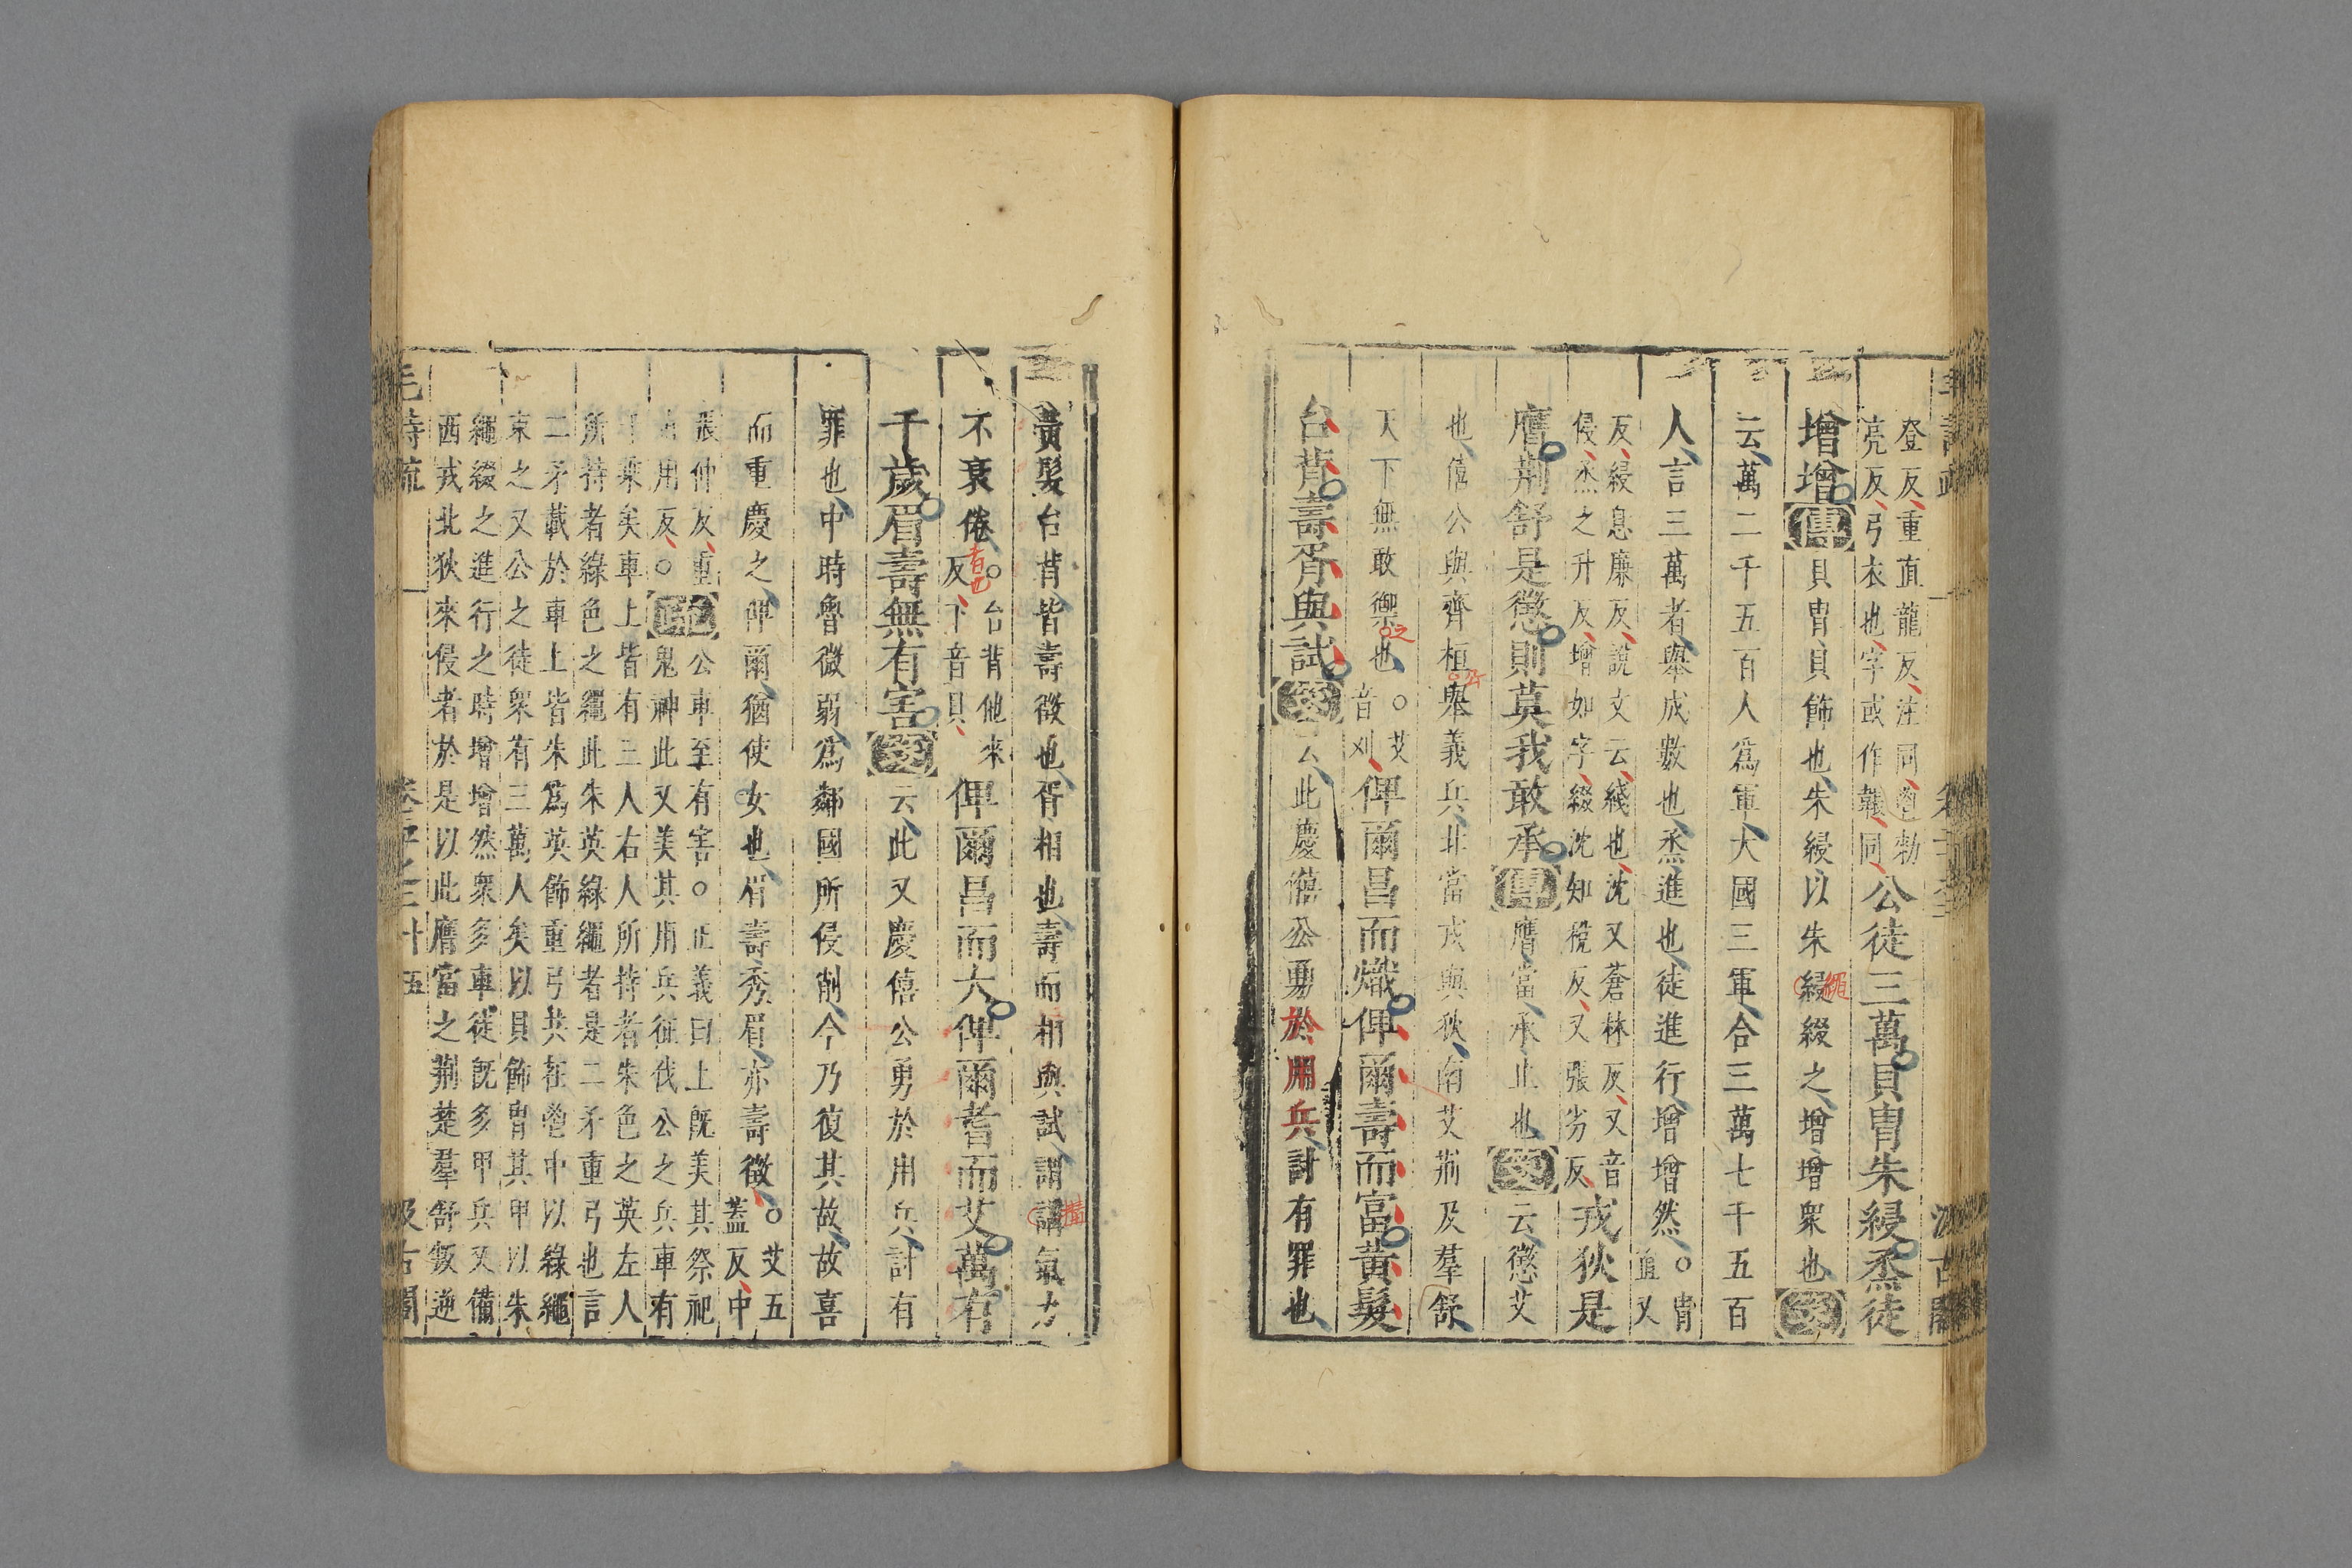 登反重直龍反注同鬯勑
亮反弓衣也字或作韔同公徒三萬貝冑朱綅烝徒
增增傳貝冑貝飾也朱綅以朱綅綴之增增衆也箋
繩
云萬二千五百人爲軍大國三軍合三萬七千五百
人言三萬者舉成數也烝進也徒進行增增然○冑
直又
反綅息廉反說文云綫也沈又蒼林反又音
侵烝之升反增如字綴沈知稅反又張劣反戎狄是
膺荆舒是懲則莫我敢承傳膺當承止也箋云懲艾
也僖公與齊桓舉義兵北當戎與狄南艾荆及羣舒
公
天下無敢禦也○艾
音刈俾爾昌而熾俾爾壽而富黃髮
之
台背壽胥與試箋云此慶僖公勇於用兵討有罪也
黃髮台背皆壽徵也胥相也壽而相與試謂謂氣力
不衰倦○台背他來
反下音貝俾爾昌而大俾爾耆而艾萬有
千歲眉壽無有害箋云此又慶僖公勇於用兵討有
罪也中時魯微弱爲鄰國所侵削今乃復其故故喜
而重慶之俾爾猶使女也眉壽秀眉亦壽徵○艾五
蓋反中
張仲反重
直用反○疏公車至有害○正義曰上旣美其祭祀
鬼神此又美其用兵征伐公之兵車有
千乘矣車上皆有三人右人所持者朱色之英左人
所持者綠色之繩此朱英綠繩者是二矛重弓也言
二矛載於車上皆朱爲英飾重弓共在鬯中以綠繩
束之又公之徒衆有三萬人矣以貝飾冑其甲以朱
繩綴之進行之時增增然衆多車徒旣多甲兵又備
西戎北狄來侵者於是以此膺當之荆楚羣舒叛逆
毛詩疏 卷二十之二 十五 汲古閣